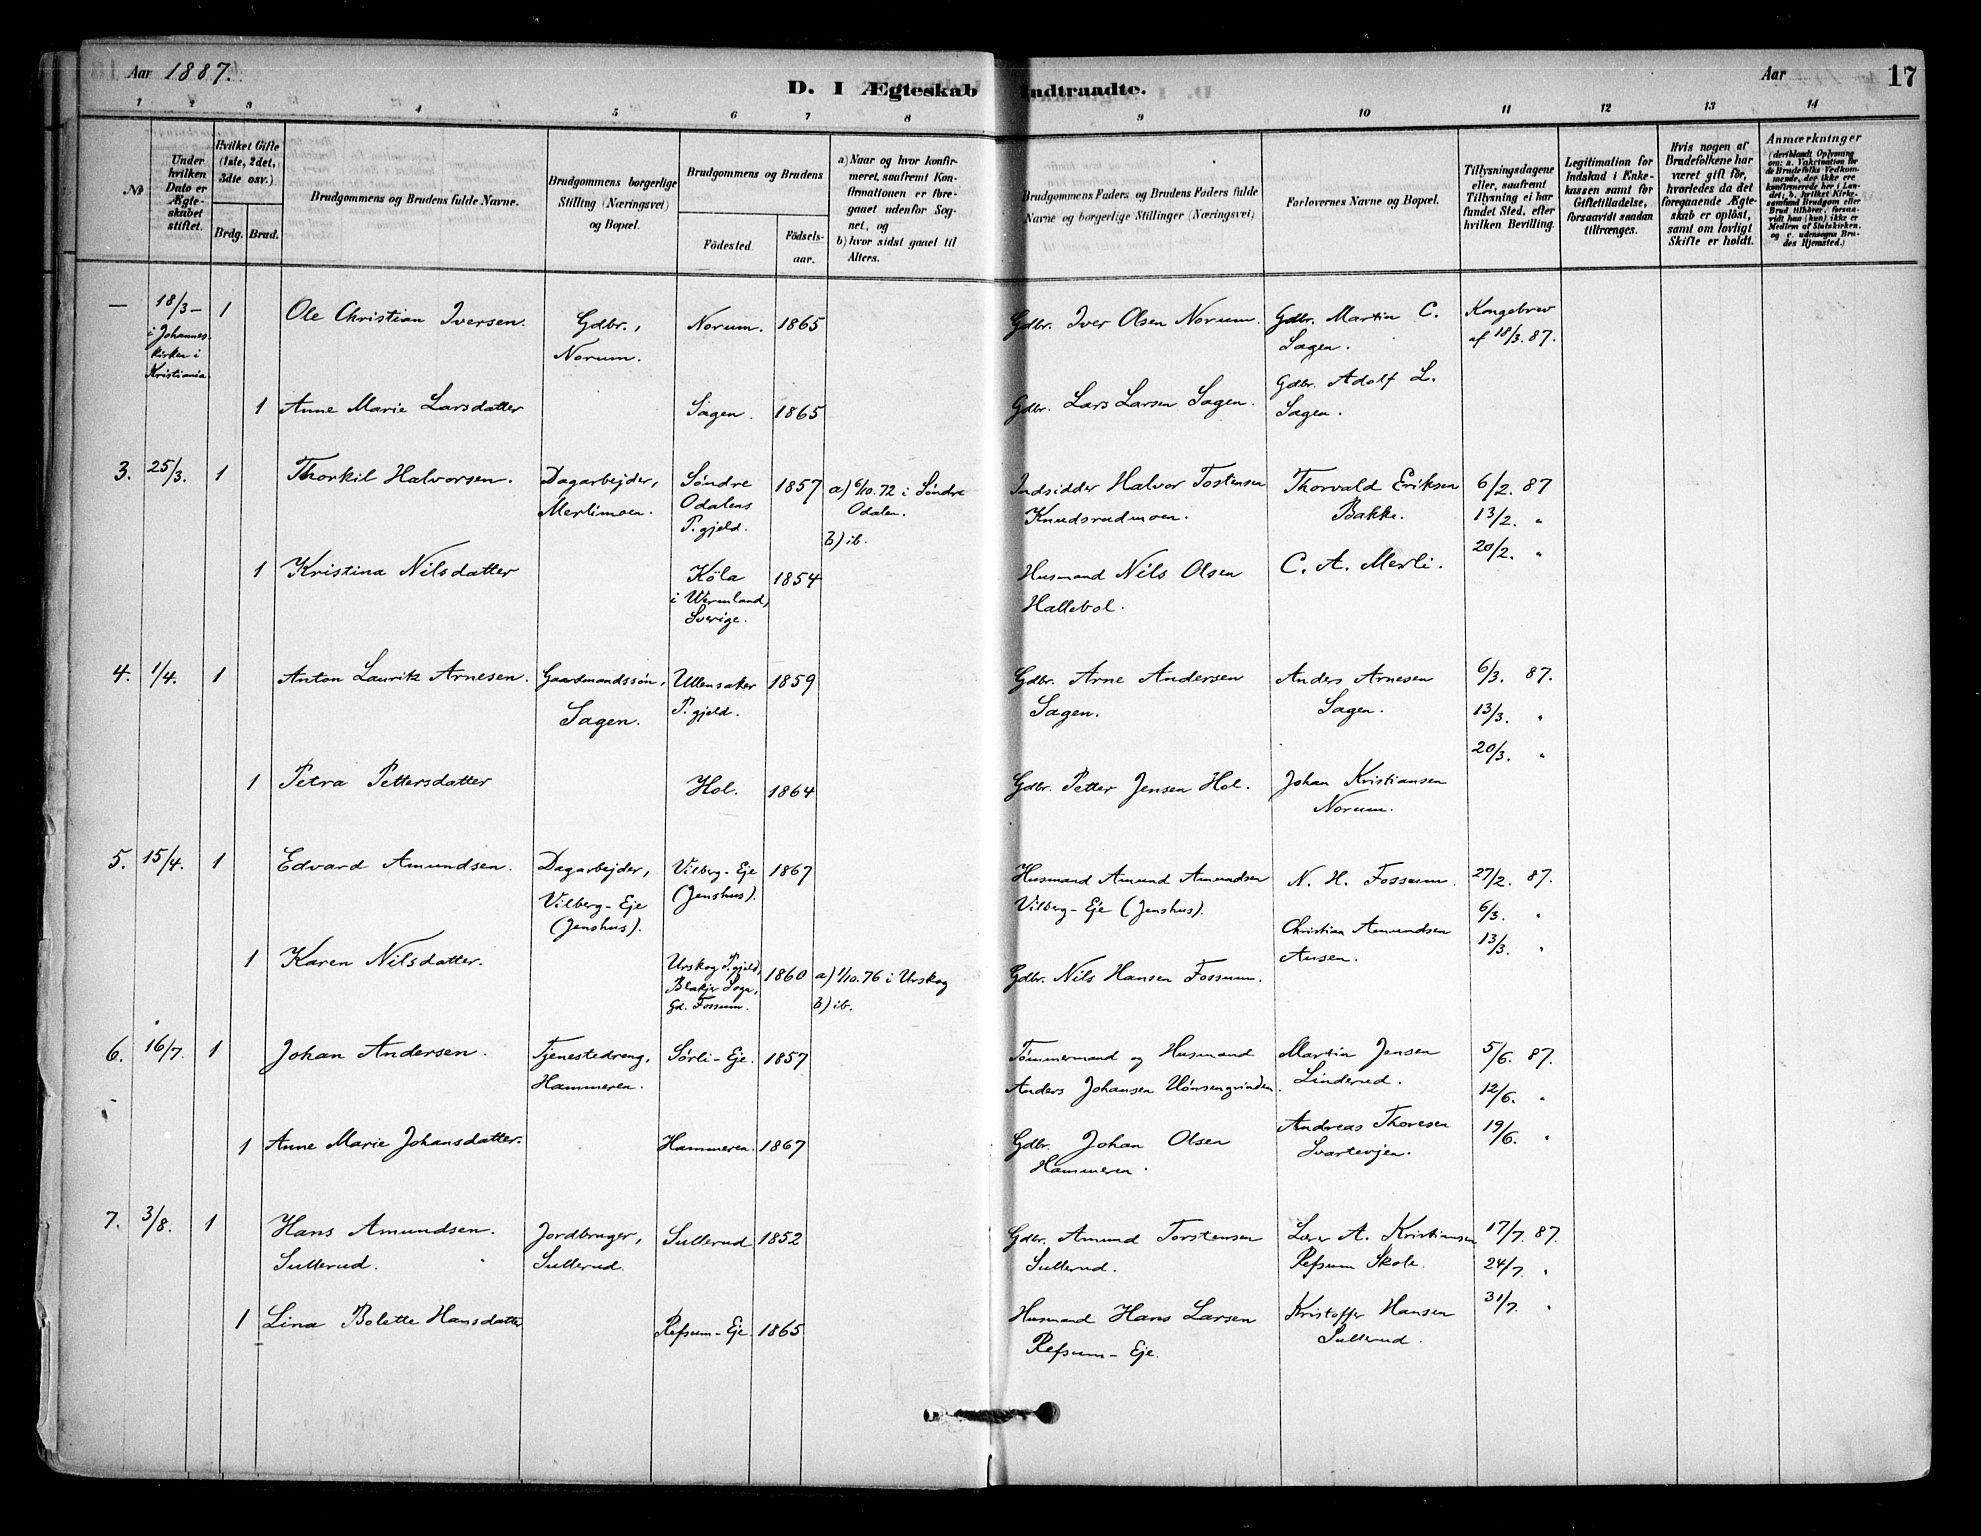 Aar 1887.
D. I Ægteskab Indtraadte.
Aar
17
1 2 3 4 5 6 7 8 9 10 11 12 13 14
No
Under hvilken Dato er Ægteskabet stiftet.
Hvilket Gifte (1ste, 2det, 3die osv.)
Brdg. Brud.
Brudgommens og Brudens fulde Navne.
Brudgommens borgerlige Stilling (Næringsvei) og Bopæl.
Brudgommens og Brudens
Fødested.
Fødselsaar.
a) Naar og hvor konfirmeret, saafremt Konfirmationen er foregaaet udenfor Sognet, og
b) hvor sidst gaaet til Alters.
Brudgommens Faders og Brudens Faders fulde Navne og borgerlige Stillinger (Næringsvei)
Forlovernes Navne og Bopæl.
Tillysningsdagene eller, saafremt Tillysning ei har fundet Sted, efter hvilken Bevilling.
Legitimation for Indskud i Enkekassen samt for Giftetilladelse, forsaavidt saadan tiltrænges.
Hvis nogen af Brudefolkene har været gift før, hvorledes da det foregaaende Ægteskab er opløst, samt om lovligt Skifte er holdt.
Anmærkninger
(deriblandt Oplysning om: a. Vakcination for de Brudefolks Vedkommende, der ikke ere konfirmerede her i Landet, b. hvilket Kirkesamfund Brudgom eller Brud tilhører, forsaavidt han (hun) ikke er Medlem af Statskirken, og c. udensogns Brudes Hjemsted.)
— 18/3 – i Johannes kirken i Kristiania 1 Ole Christian Iversen. Gdbr., Norum. Norum. 1865 Gdbr. Iver Olsen Norum. Gdbr. Martin C. Sagen. Kongebrev af 18/3. 87.
1 Anne Marie Larsdatter Sagen. 1865 Gdbr. Lars Larsen Sagen. Gdbr. Adolf L. Sagen.
3. 25/3. 1 Thorkil Halvorsen. Dagarbejder, Merlimoen. Søndre Odalens P.gjeld. 1857 a) 6/10. 72 i Søndre Odalen. b) ib. Indsidder Halvor Tostensen Knudsrudmoen. Thorvald Eriksen Bakke. 6/2. 87 13/2. " 20/2. "
1 Kristina Nilsdatter Köla i Wermland, Sverige. 1854 Husmand Nils Olsen Hallebol. C. A. Merli.
4. 1/4. 1 Anton Lauritz Arnesen. Gaardmandssøn, Sagen. Ullensaker P.gjeld. 1859 Gdbr. Arne Andersen Sagen. Anders Arnesen Sagen. 6/3. 87. 13/3. " 20/3. "
1 Petra Pettersdatter Hol. 1864 Gdbr. Petter Jensen Hol. Johan Kristiansen Norum.
5. 15/4. 1 Edvard Amundsen. Dagarbejder, Vilberg-Eje (Jenshus). Vilberg-Eje (Jenshus). 1867 Husmand Amund Amundsen Vilberg-Eje (Jenshus). N. H. Fossum. 27/2. 87. 6/3. " 13/3. "
1 Karen Nilsdatter. Urskog P.gjeld, Blakjer Sogn, Gd. Fossum. 1860 a) 1/10. 76 i Urskog b) ib. Gdbr. Nils Hansen Fossum. Christian Amundsen Ausen.
6. 16/7. 1 Johan Andersen. Tjenestedreng, Hammeren. Sørli-Eje. 1857 Tømmermand og Husmand Anders Johansen Martin Jensen Linderud. 5/6. 87. 12/6. " 19/6. "
1 Anne Marie Johansdatter. Hammeren. 1867 Gdbr. Johan Olsen Hammeren. Andreas Thoresen
7. 3/8. 1 Hans Amundsen. Sullerud. Jordbruger, Sullerud. Sullerud 1852 Gdbr. Amund Torstensen Sullerud. Lærer A. Kristiansen Refsum Skole. 17/7. 87. 24/7. " 31/7. "
1 Lina Bolette Hansdatter Refsum-Eje 1865 Husmand Hans Larsen Refsum-Eje. Kristoffer Hansen Sullerud.